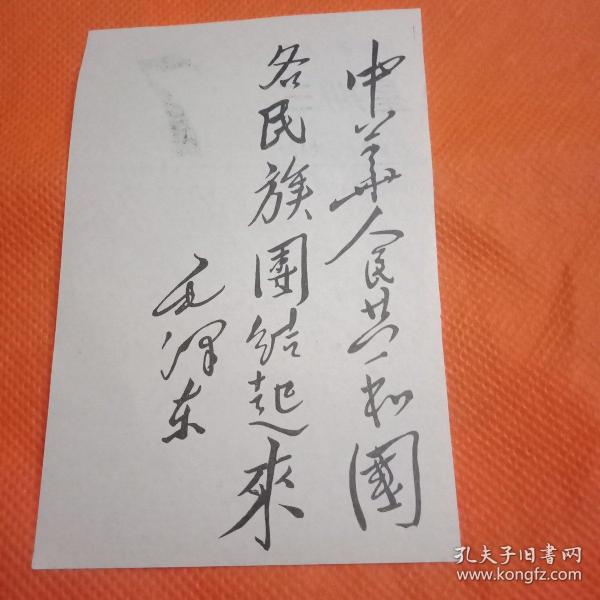 中華人民共和國
各民族團結起來
毛澤东
孔夫子旧書网
www.kongfz.com